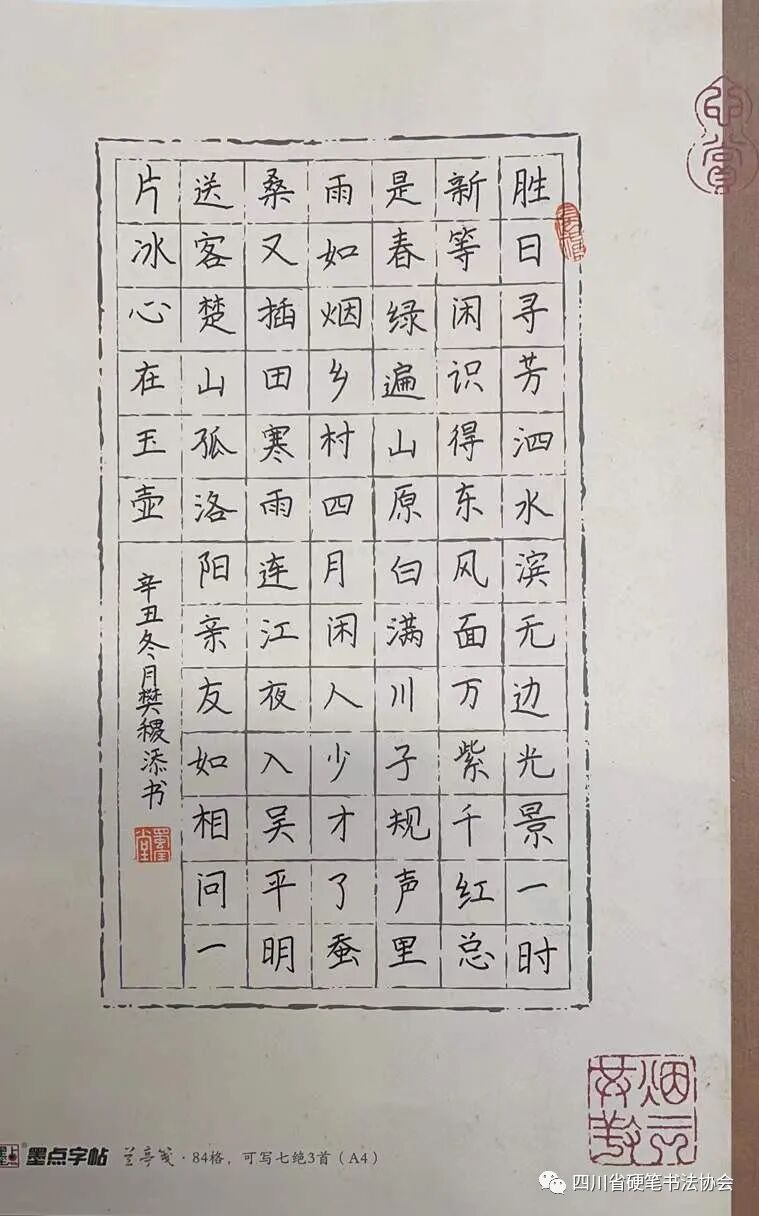 胜日寻芳泗水滨无边光景一时
新等闲识得东风面万紫千红总
是春绿遍山原白满川子规声里
雨如烟乡村四月闲人少才了蚕
桑又插田寒雨连江夜入吴平明
送客楚山孤洛阳亲友如相问一
片冰心在玉壶
辛丑冬月樊稷添书
墨点字帖 兰亭笺·84格，可写七绝3首（A4）
四川省硬笔书法协会